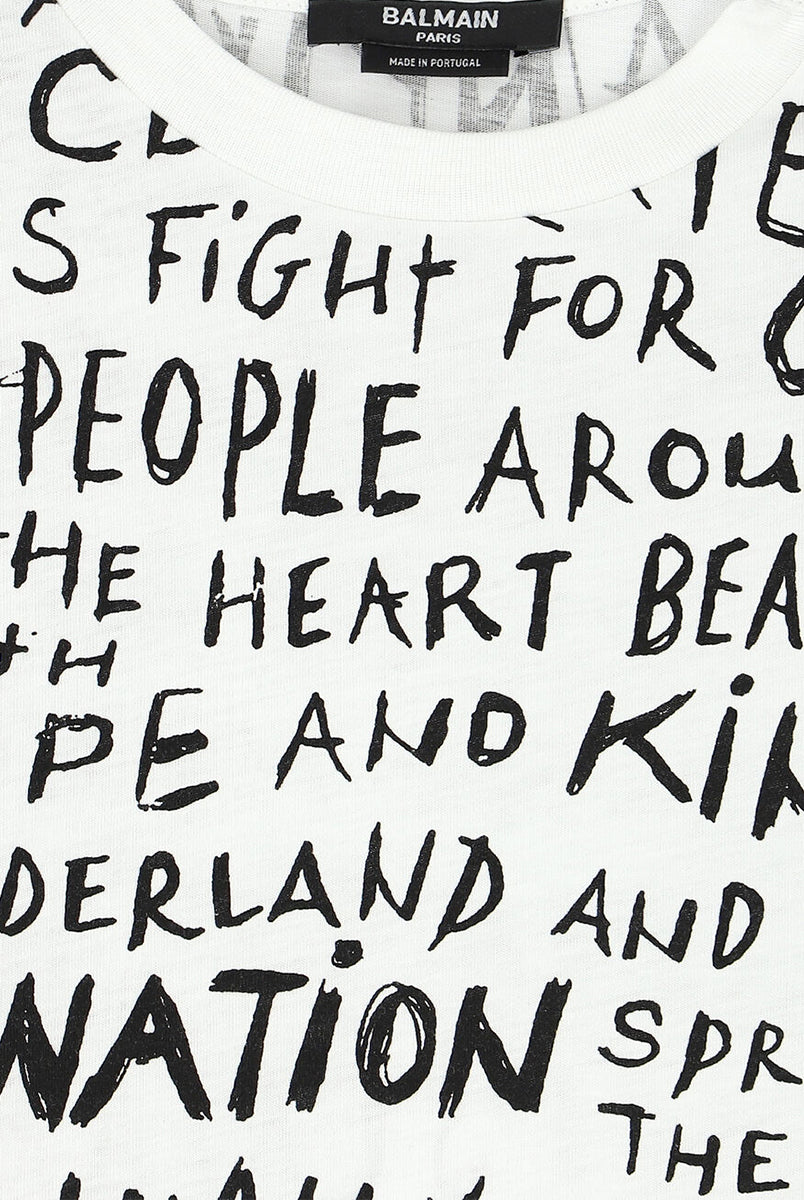 BALMAIN
PARIS
MADE IN PORTUGAL
S FIGHT FOR
PEOPLE AROU
THE HEART BEA
TH
PE AND KIN
DERLAND AND
NATION SPR
THE